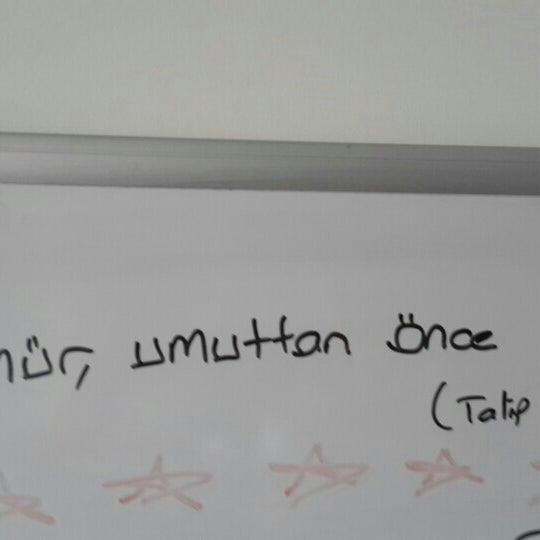 mür, umuttan önce
(Talip